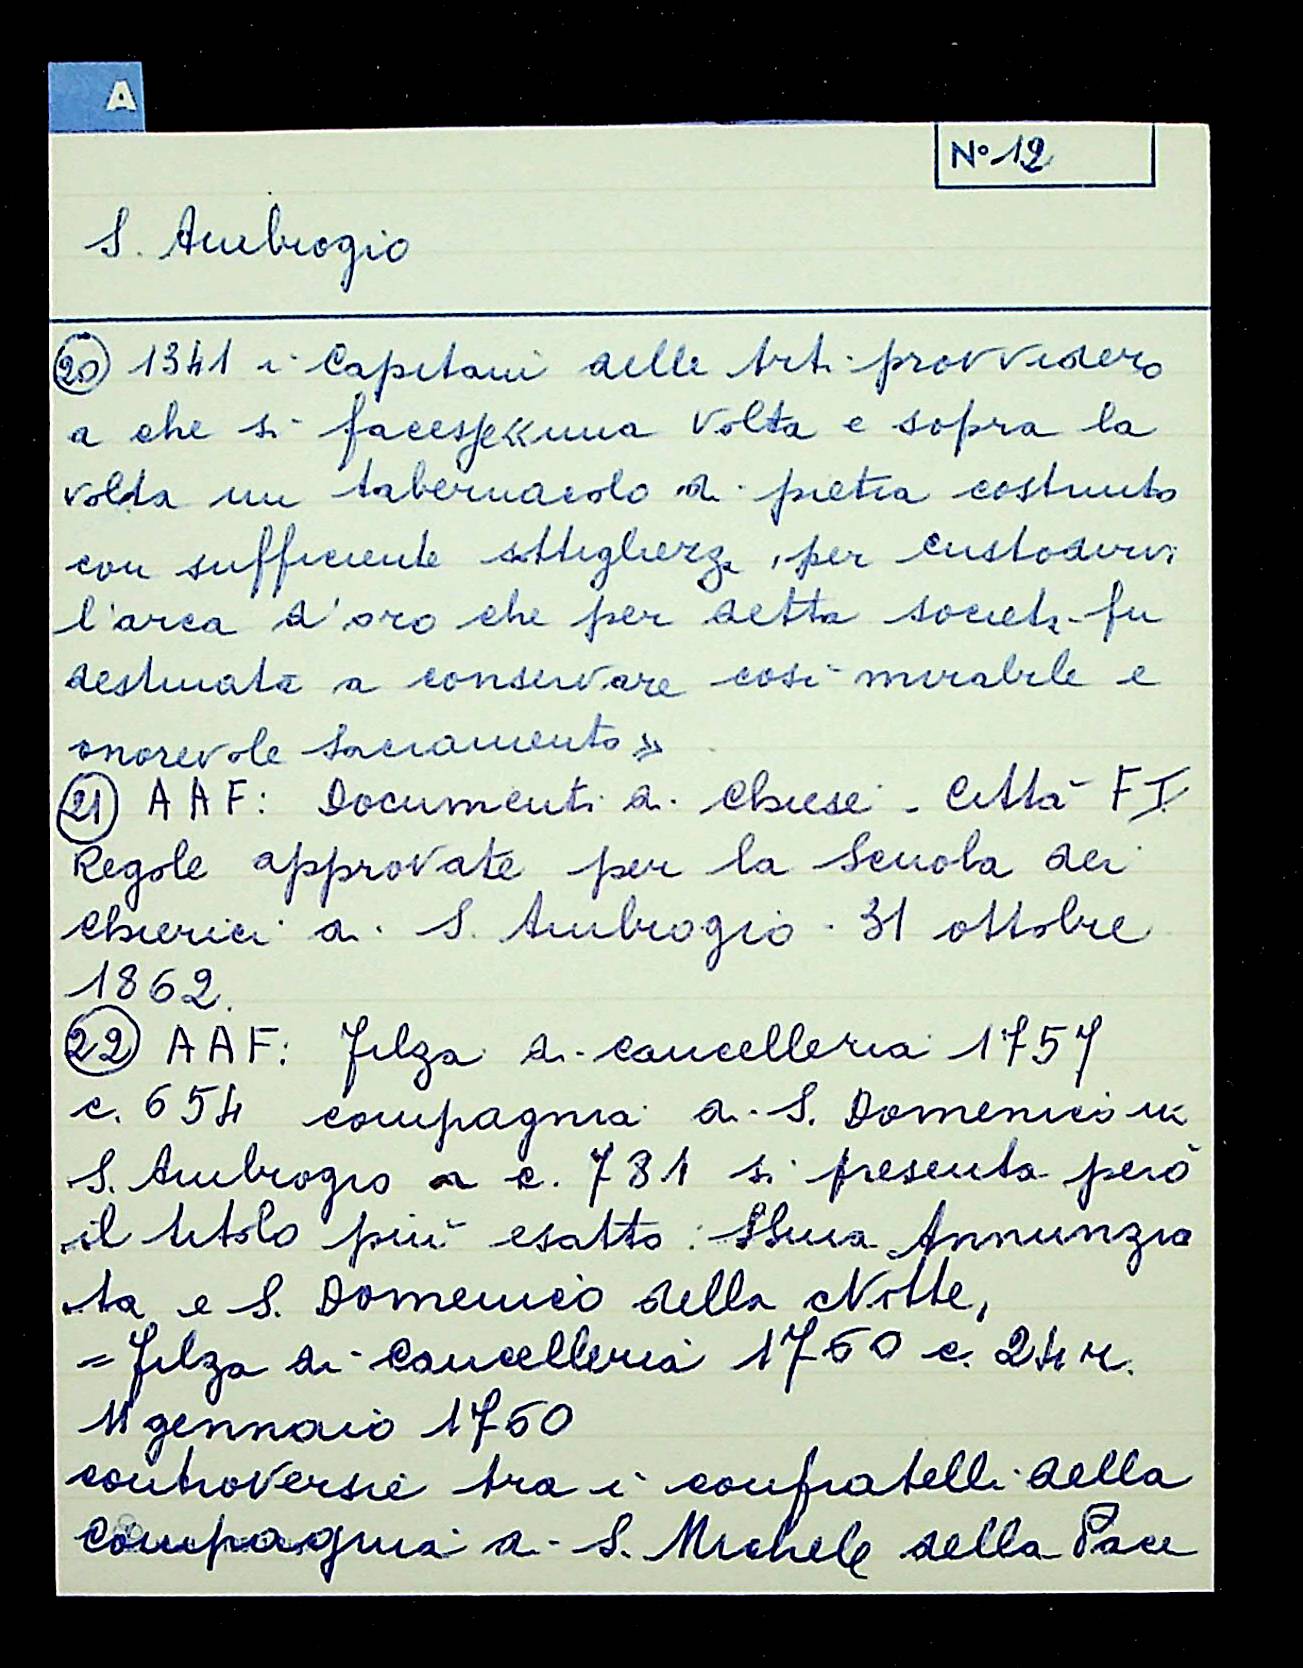 A
N° 12
S. Ambrogio
20 1341 i Capitani delle Arti provvidero
a che si facesse «una volta e sopra la
volta un tabernacolo di pietra costruito
con sufficiente sottigliezza, per custodirvi
l'arca d'oro che per detta società fu
destinata a conservare così mirabile e
onorevole Sacramento»
21 AAF: Documenti di Chiese - Città FI
Regole approvate per la Scuola dei
Chierici di S. Ambrogio - 31 ottobre
1862.
22 AAF: Filza di cancelleria 1757
c. 654 compagnia di S. Domenico in
S. Ambrogio a c. 781 si presenta però
il titolo più esatto: SSma Annunzia
ta e S. Domenico della Notte,
= Filza di Cancelleria 1760 c. 24 r.
11 gennaio 1760
controversie tra i confratelli della
Compagnia di S. Michele della Pace